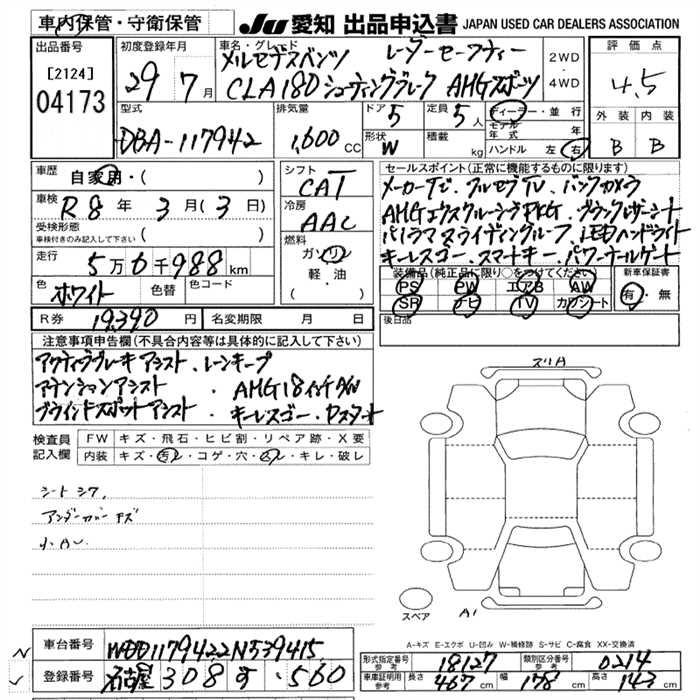 車内保管・守衛保管
JU 愛知 出品申込書 JAPAN USED CAR DEALERS ASSOCIATION
出品番号 [2124] 04173
初度登録年月 29 7月
車名・グレード メルセデスベンツ レーダーセーフティー
CLA180 シューティングブレーク AHGスポーツ
2WD・4WD
評価点 4.5
型式 DBA-117942
排気量 1,600 CC
ドア 5
定員 5人
形状 W
積載 kg
ディーラー・並行
モデル年式 年
ハンドル 左・右
外装 内装
B B
車歴 自家用・( )
車検 R8年 3月(3日)
受検形態
車検付きのみ記入して下さい ( )
走行 5万6千988km
色 ホワイト 色替 色コード
R券 19,390円 名変期限 月 日
シフト CAT
冷房 AAC
燃料 ガソリン
軽・油
( )
セールスポイント(正常に機能するものに限ります)
メーカーナビ・フルセグTV・バックカメラ
AHGエクスクルーシブPKG・ブラックレザーシート
パノラマスライディングルーフ・LEDハンドライト
キーレスゴー・スマートキー・パワーテールゲート
装備品(純正品に限り○をつけてください) 新車保証書
PS PW エアB AW 有・無
SR ナビ TV カワシート
後日品
注意事項申告欄(不具合内容等は具体的に記入して下さい)
アクティブブレーキアシスト・レーンキープ
アテンションアシスト・AHG18インチAW
ブラインドスポットアシスト・キーレスゴー・
検査員記入欄
FW キズ・飛石・ヒビ割・リペア跡・X要
内装 キズ・汚レ・コゲ・穴・スレ・キレ・破レ
シートシワ,
アンダーカバーキズ
小A〜
スリA
スペア
A1
A-キズ E-エクボ U-凹み W-補修跡 S-サビ C-腐食 XX-交換済
車台番号 WDD1179422N539415
登録番号 名古屋 308 す・560
形式指定番号 参考 18127 類別区分番号 参考 0214
車庫証明用 参考 長さ 467cm 幅 178cm 高さ 143cm